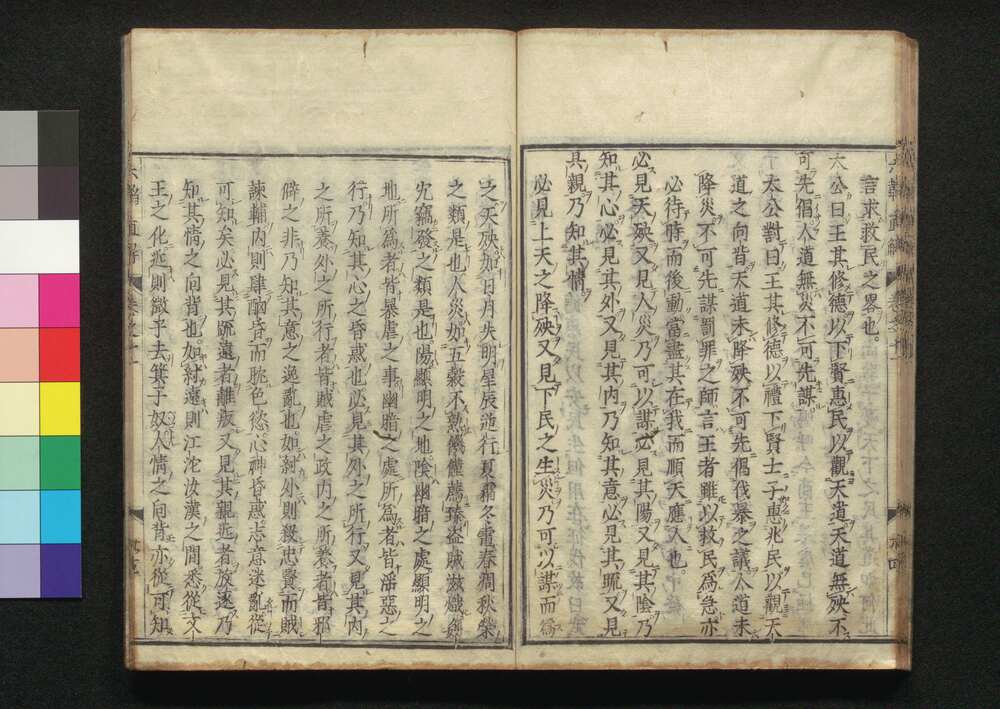 言求救民之畧也。
太公曰王其修德以下賢惠民以觀天道天道無殃不
可先倡人道無災不可先謀
太公對曰王其修德以禮下賢士子惠兆民以觀天
道之向背天道未降殃不可先倡伐暴之議人道未
降災不可先謀罰罪之師言王者雖以救民爲急亦
必待時而後動當盡其在我而順天應人也。
必見天殃又見人災乃可以謀必見其陽又見其陰乃
知其心必見其外又見其内乃知其意必見其疏又見
其親乃知其情
必見上天之降殃又見下民之生災乃可以謀而
之天殃如日月失明星辰逆行夏霜冬雷春凋秋榮
之類是也人災如五穀不熟饑饉薦臻盜賊滋熾
宄竊發之類是也陽顯明之地陰幽暗之處顯明之
地所爲者皆暴虐之事幽暗之處所爲者皆滛惡之
行乃知其心之昏惑也必見其外之所行又見其内
之所養外之所行者皆賊虐之政内之所養者皆邪
僻之非乃知其意之逸亂也如紂外則殺忠賢而賊
諫輔内則肆酗昏而耽色慾心神昏惑志意迷亂從
可知矣必見其疏遠者離叛又見其親近者放逐乃
知其情之向背也。如紂遠則江沱汝漢之間悉從文
王之化近則微子去箕子奴人情之向背亦從可知